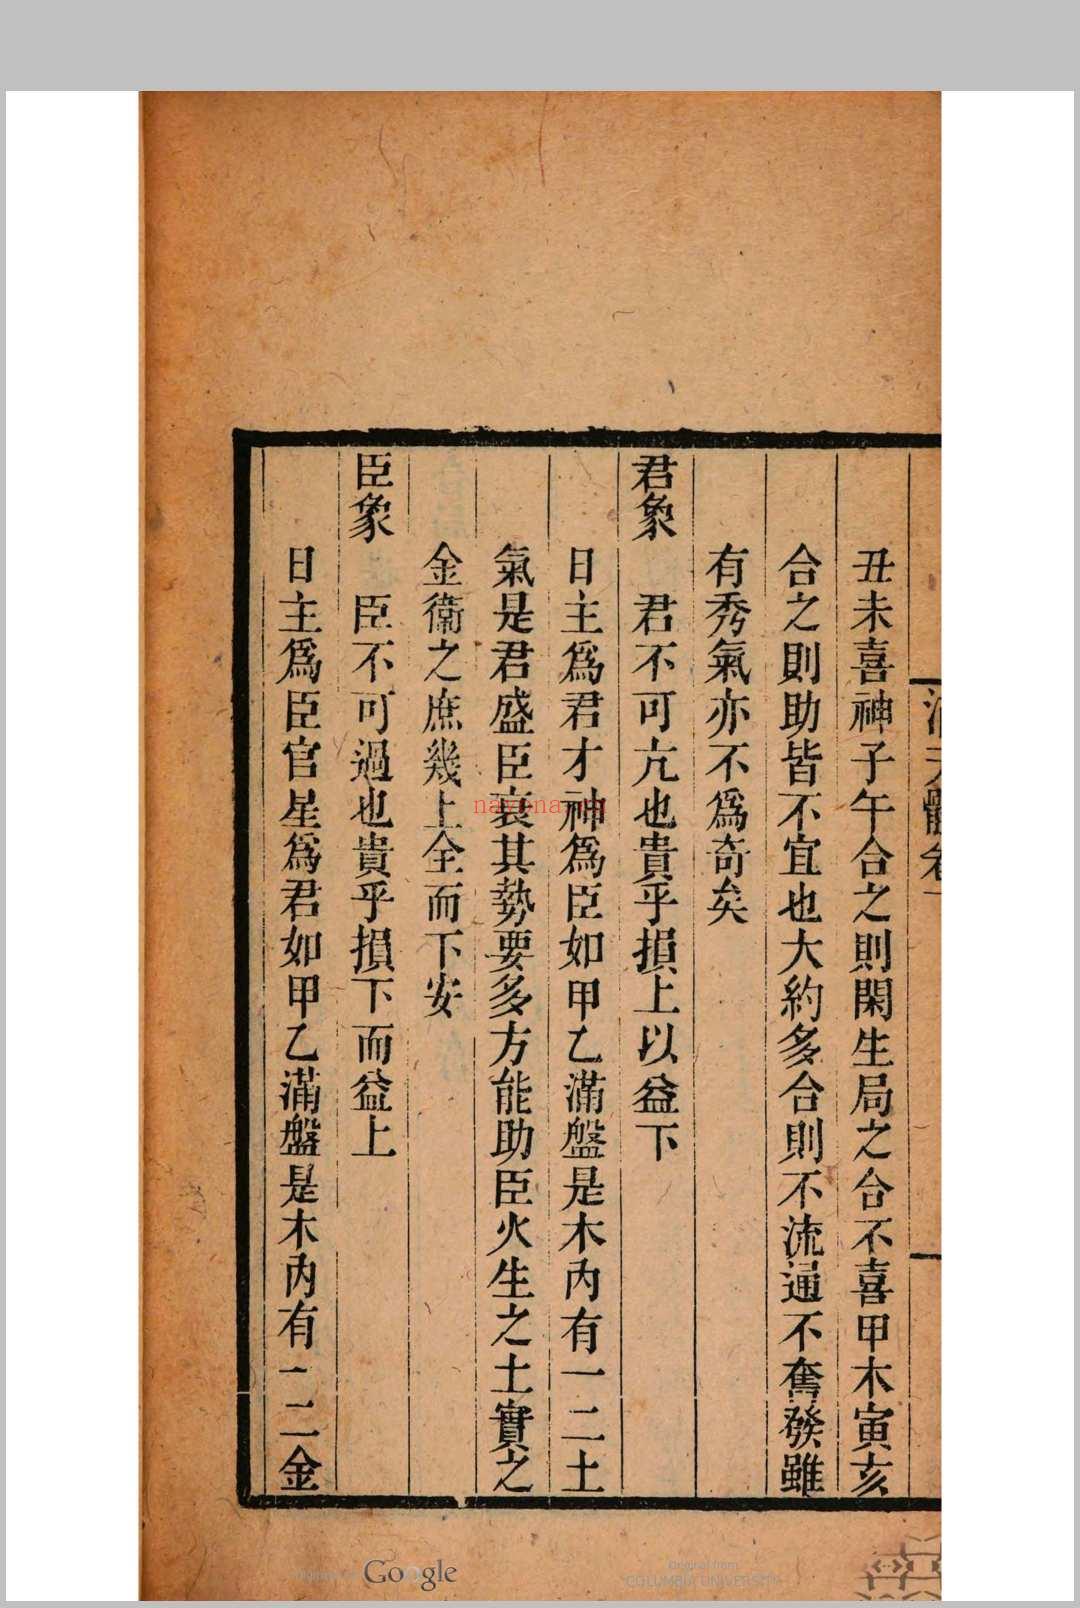 丑未喜神子午合之則閑生局之合不喜甲木寅亥
合之則助皆不宜也大約多合則不流通不奮發雖
有秀氣亦不爲奇矣
君象　君不可亢也貴乎損上以益下
日主爲君才神爲臣如甲乙滿盤是木內有一二土
氣是君盛臣衰其勢要多方能助臣火生之土實之
金衞之庶幾上全而下安
臣象　臣不可過也貴乎損下而益上
日主爲臣官星爲君如甲乙滿盤是木內有一二金
Google
Original from
COLUMBIA UNIVERSITY